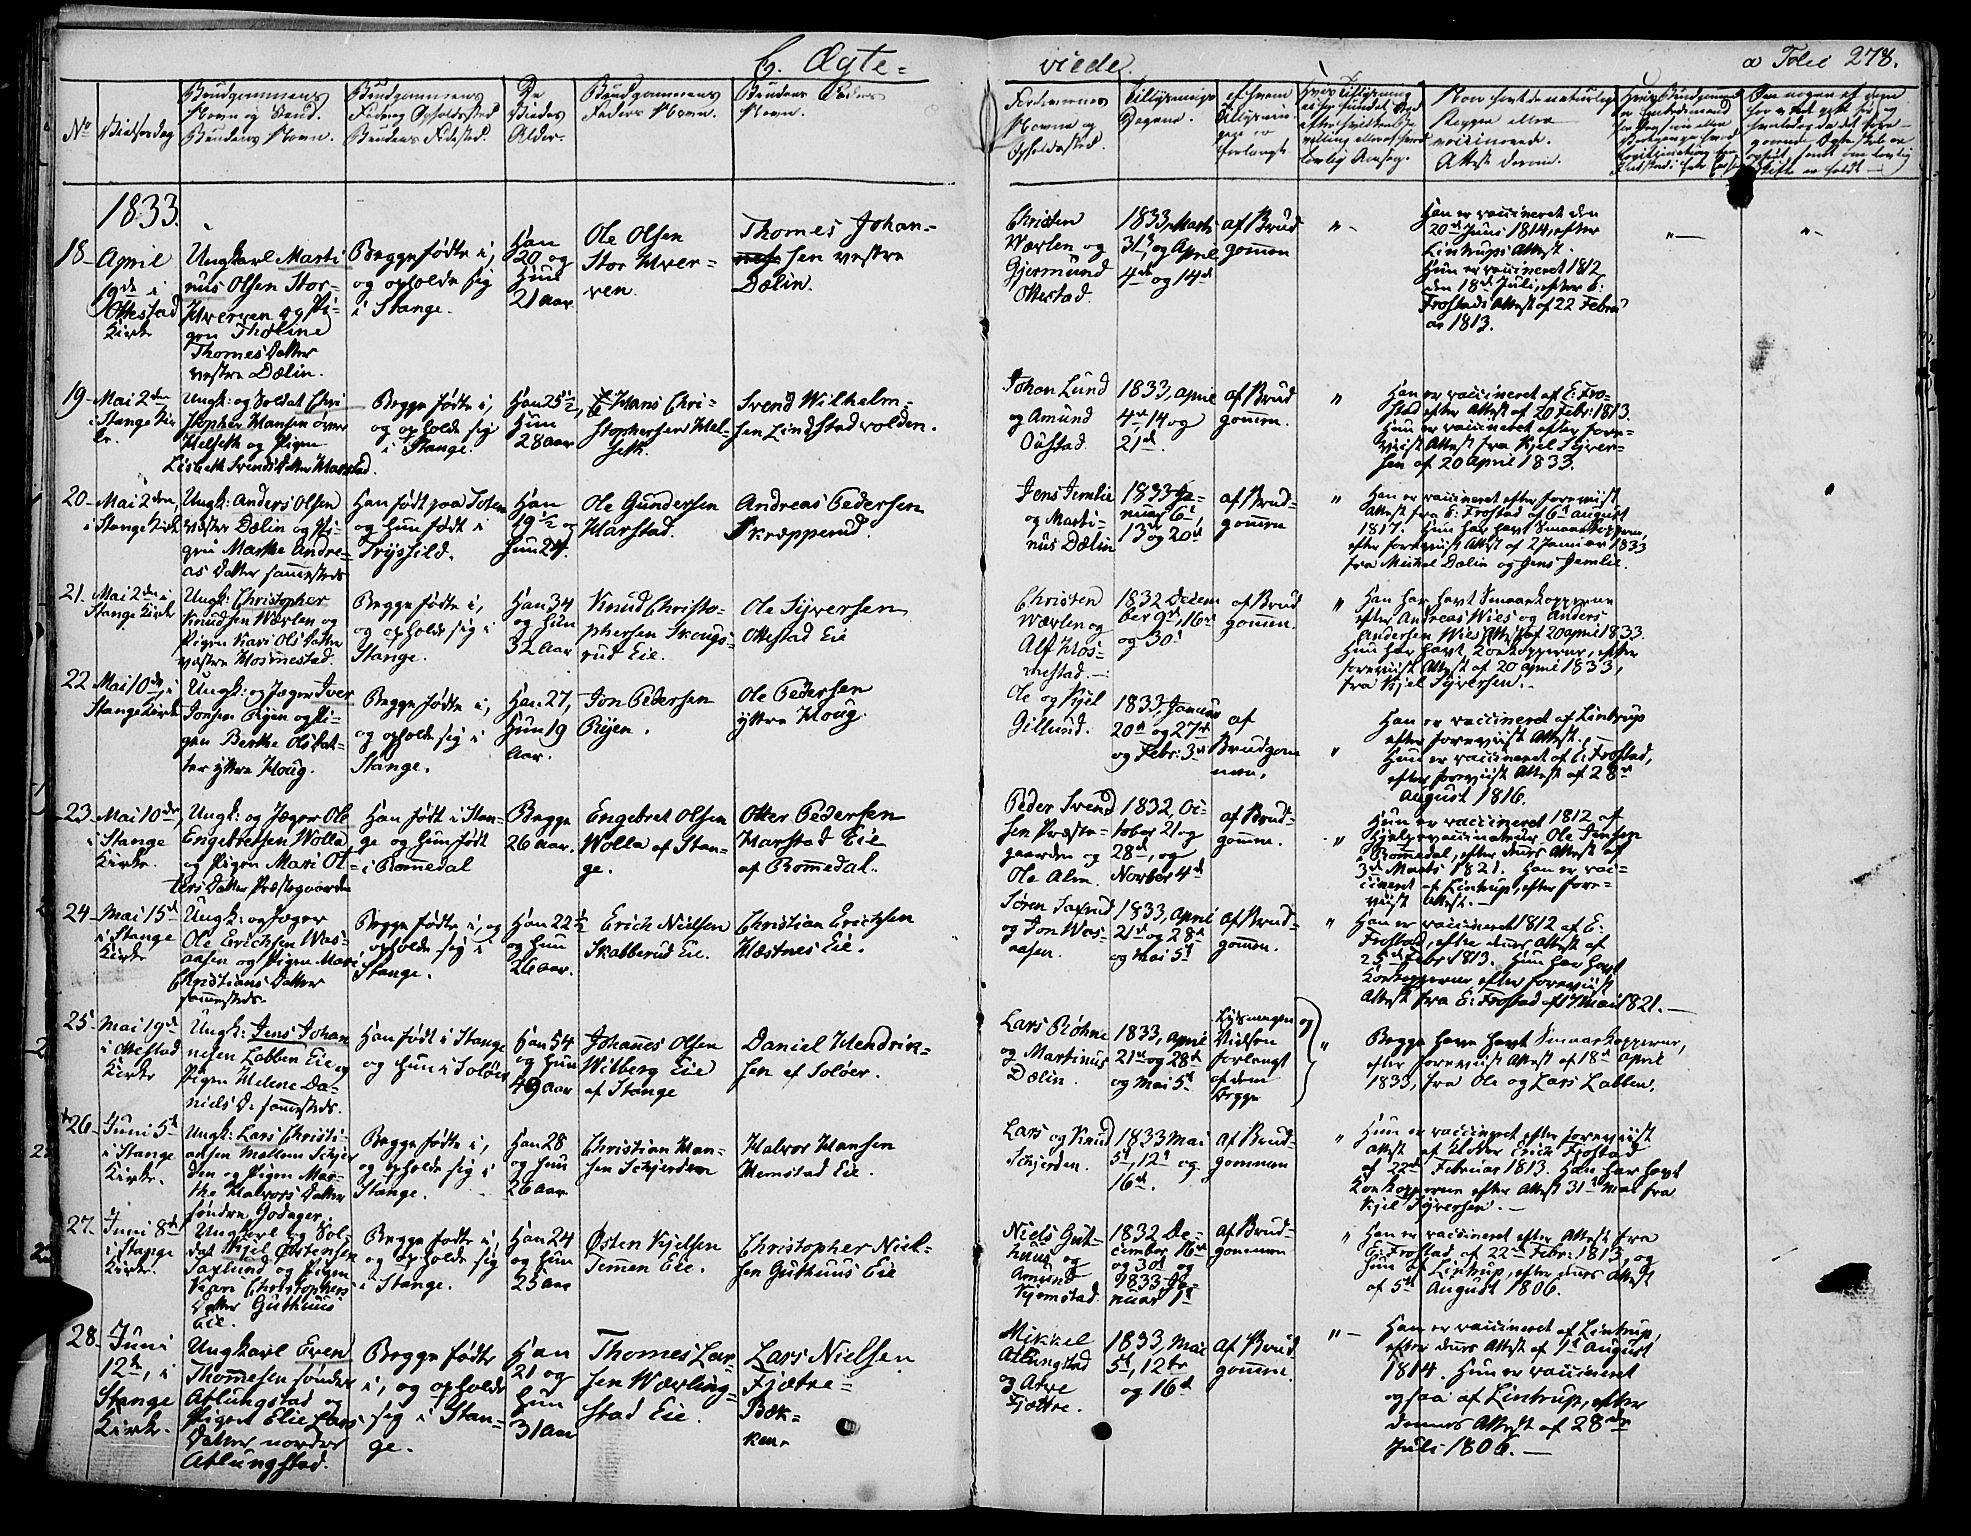 C. Ægte-
viede.
a Folei 278.
No
Vielsesdag
Brudgommens
Navn og Stand.
Brudens Navn.
Brudgommens
Fødeog Opholdssted
Brudens Fødested.
De
Viedes
Alder.
Brudgommens
Faders Navn.
Brudens Faders
Navn.
Forlovernes
Navne og
Opholdssted.
Tillysnings
Dagene.
af hvem
Tillysnin-
gen er
forlangt
1833.
18-
April
i
Ottestad
Kirke
Ungkarl Marti
nus Olsen Stor-
Hverven og Pi-
gen Tholine
Thomes Datter
vestre Dælin.
Begge fødte i,
og opholde sig
i Stange.
Han
20 og
Hun
21 aar.
Ole Olsen
Stor Hver-
ven.
Thomes Johan-
sen vestre
Dælin.
Christen
Wærlen og
Gjermund
Ottestad.
1833, Marti
31t, og April
4de og 14d
af Brud
gomen
" -
Han er vaccineret den
20de Juni 1814, efter
Lintrups Attest.
Hun er vaccineret 1812,
den 18de Juli, efter E:
Frostads Attest af 22 Febru
ar 1813.
" -
" -
19-
Mai 2den
i Stange Kir
ke.
Ungk: og Soldat Chri
stopher Hansen øvre
Helseth og Pigen
Lisbeth Svends Datter Harstad.
Begge fødte i,
og opholde sig
i Stange.
Han 25 1/2,
Hun
28 aar
Hans Chri-
stophersen Hel-
seth.
Svend Wilhelm-
sen Lindstadvolden.
Johan Lund
og Amund
Oustad.
1833, April
4de 14 og
21de.
af Brud
gomen.
"
Han er vaccineret af E: Fro-
stad efter Attest af 20 Febr: 1813.
Hun er vaccineret efter fore-
viist Attest fra Kjel Syver-
sen af 20 April 1833.
20-
Mai 2den,
i Stange Kirke
Ungk: Anders Olsen
vester Dælin og Pi-
gen Marthe Andre-
as Datter samesteds
Han født paa Toten
og Hun født i
Trysild.
Han
19 1/2 og
Hun 24.
Ole Gundersen
Harstad.
Andreas Pedersen
Kræpperud.
Jens Jemlie
og Marti-
nus Dælin
1833 Ja-
nuar 6t,
13 og 20de
af Brud-
gomen
"
Han er vaccineret efter foreviist
Attest fra E: Frostad af 6t August
1817. Hun har havt Smaakopperne,
efter foreviist Attest af 2 Januar 1833
fra Michel Dælin og Jens Jemlie.
21-
Mai 2den i
Stange Kirke
Ungk: Christopher
Knudsen Wærlen og
Pigen Kari Ols Datter
vestre Hosmestad.
Begge fødte i,
og opholde sig i
Stange.
Han 34
og Hun
32 aar
Knud Christo-
phersen Skougs-
rud Eie.
Ole Syversen
Ottestad Eie
Christen
Wærlen og
Alf Hos-
mestad.-
1832 Decem
ber 9de, 16de
og 30t
af Brud
gomen.
"
Han har havt Smaakopperne
efter Andreas Wies og Anders
Andersen Wies Attest af 20 April 1833.
Hun har havt Koekopperne, efter
foreviist Attest af 20 April 1833,
fra Kjel Syversen.-
22
Mai 10de, i
Stange Kirke
Ungk: og Jæger Iver
Jonsen Ryen og Pi-
gen Berthe Ols Dat-
ter yttre Houg.
Begge fødte i,
og opholde sig i
Stange.
Han 27,
Hun 19
Aar.
Jon Pedersen
Ryen.
Ole Pedersen
yttre Houg.
Ole og Kjel
Gillund.
1833, Januar
20de og 27de
og Febr: 3de
af
Brudgom
men,
"
Han er vaccineret af Lintrup
efter foreviist Attest.
Hun er vaccineret af E: Frostad,
efter foreviist Attest af 28de
August 1816.
23-
Mai 10de,
i Stange
Kirke.
Ungk: og Jæger Ole
Engebretsen Wolla,
og Pigen Mari Ot-
ters Datter Præstegaarden
Han født i Stan-
ge og Hun født
i Romedal
Begge
26 aar.
Engebret Olsen
Wolla af Stan-
ge.
Otter Pedersen
Harstad Eie
af Romedal.
Peder Svend
sen Præste-
gaarden og
Ole Alm.
1832, Oc-
tober 21 og
28de, og
Novber 4de
af Brud-
gomen.
"
Hun er vaccineret 1812 af
Hjelpevaccinateur Ole Jensen
i Romedal, efter dens Attest af
3de Marts 1821. Han er vac-
cineret af Lintrup, efter fore-
viist Attest.-
24-
Mai 15de
i Stange
Kirke
Ungk: og Jæger
Ole Erichsen Was-
aasen og Pigen Mari
Christians Datter
samesteds.
Begge fødte i, og
opholde sig i
Stange.
Han 22 1/2
og Hun
26 aar.
Erich Nielsen
Skabberud Eie.
Christian Erichsen
Hæstnes Eie.
Søren Saxrud
og Jon Was-
aasen.
1833, April
21de og 28de
og Mai 5t
af Brud-
gomen.
"
Han er vaccineret 1812 af E:
Frostad, efter dens Attest af
25de Febr 1813. Hun har havt
Koekopperne efter foreviist
Attest fra E: Frostad af 17 Mai 1821.-
25-
Mai 19de
i Ottestad
Kirke
Ungk: Jens Johan
nesen Labben Eie og
Pigen Helene Da-
niels D. samesteds.
Han født i Stange
og Hun i Soløer
Han 54
og Hun
49 aar
Johanes Olsen
Wilberg Eie
af Stange
Daniel Hendrik-
sen af Soløer.
Lars Røhne
og Martinus
Dælin.
1833, April
21de og 28de
og Mai 5t
Lysningen og
Vielsen
forlangt
af dem
Begge
"
Begge have havt Smaakopperne,
efter foreviist Attest af 18de April
1833, fra Ole og Lars Labben.
26-
Juni 5te
i Stange
Kirke.
Ungk: Lars Christi-
ansen Mellem Schjer
den og Pigen Mar-
the Halvors Datter
søndre Jodager
Begge fødte i,
og opholde sig i
Stange.
Han 28
og Hun
26 aar
Christian Han-
sen Schjerden
Halvor Hansen
Hemstad Eie.
Lars og Knud
Schjerden.
1833 Mai
5t, 12t og
16de.
af Brud-
gommen
"
Hun er vaccineret efter foreviist
Attest af Kloker Erich Frostad
af 22de Februar 1813. Han har havt
Koekopperne efter Attest 31t Mai fra
Kjel Syversen.-
27.
Juni 8de
i Stange
Kirke.
Ungkarl og Sol-
dat Kjel Østensen
Saxlund og Pigen
Kari Christophers
Datter Guthuus
Eie.
Begge fødte i,
og opholde sig
i Stange.
Han 24
og Hun
25 aar
Østen Kjelsen
Temen Eie.
Christopher Niel-
sen Guthuus Eie
Niels Gut-
huus og
Amund
Kjemstad.
1832 De-
cember 16de
og 30t og
1833 Ja-
nuar 1t
af Brud-
gommen
"
Han er vaccineret efter Attest fra
E: Frostad af 22de Febr: 1813, og
Hun af Lintrup, efter dens Attest
af 5te August 1806.
28.
Juni
12te, i
Stange
Kirke.
Ungkarl Even
Thomesen søndre
Atlungstad og
Pigen Elie Lars
Datter nordre
Atlungstad.
Begge fødte
i, og opholde
sig i Stan-
ge.
Han
21 og
Hun
31 aar
Thomes Lar-
sen Wærling-
stad Eie.
Lars Nielsen
Fjætre-
Bæk-
ken.
Mikkel
Atlungstad
og Arve
Fjættre.
1833, Mai
5t, 12te
og 16de
af Brud
gomen.
" -
Han er vaccineret af Lintrup,
efter dens Attest af 1te August
1814. Hun er vaccineret
ogsaa af Lintrup, efter
dennes Attest af 28de
Juli 1806.-